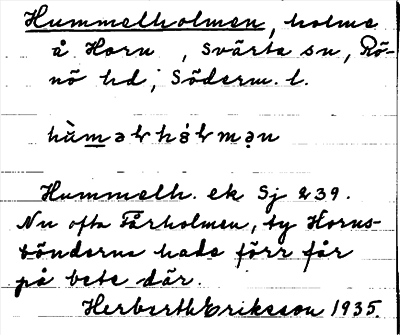 Hummelholmen, holme
å Horn , Svärta sn, Rö-
nö hd, Söderm. l.
Hummelh. ek Sj 239.
Nu ofta Fårholmen, ty Horns-
bönderna hade förr får
på bete där.
Herbert Eriksson 1935.